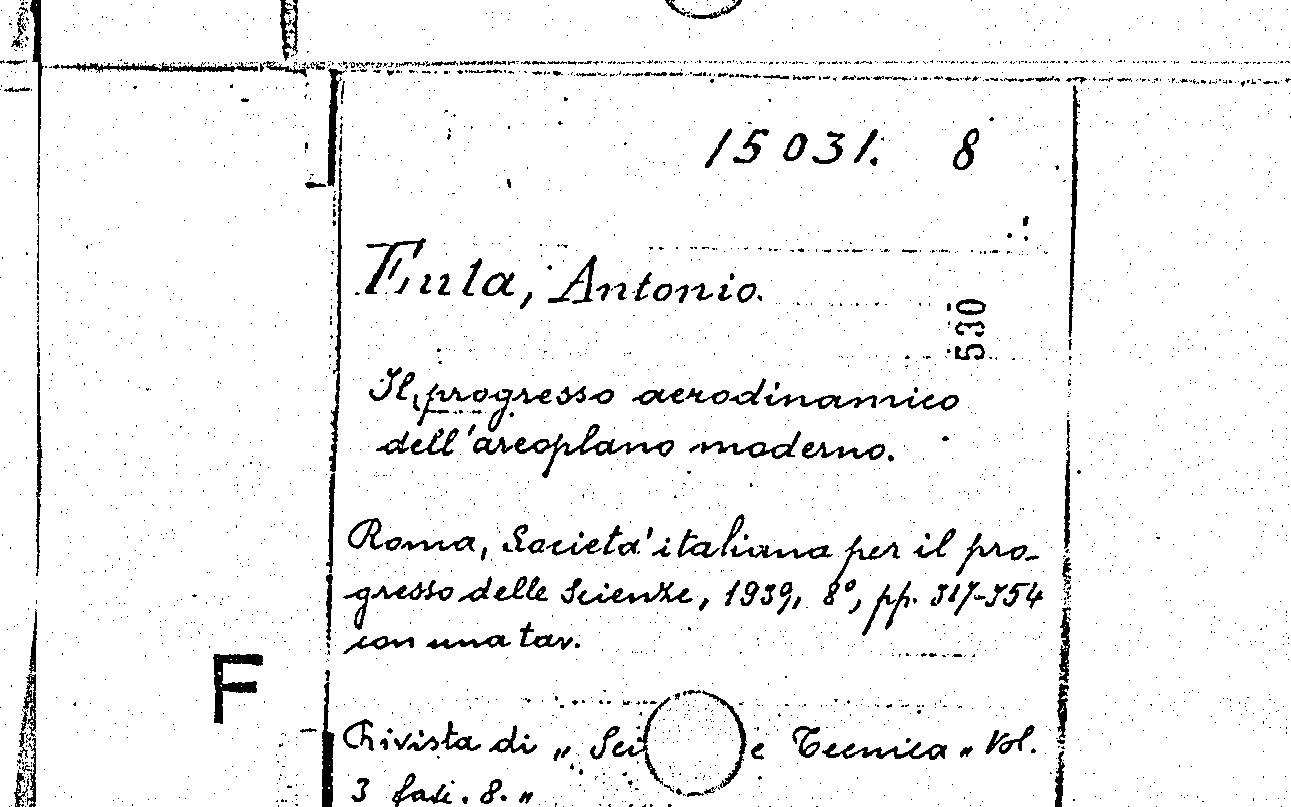 15031. 8
Eula, Antonio.
530
Il progresso aerodinamico
dell'areoplano moderno.
Roma, Società italiana per il pro-
gresso delle Scienze, 1939, 8°, pp. 317-354
con una tav.
F
Rivista di „ Sci e Tecnica „ Vol.
3 fasc. 8. „